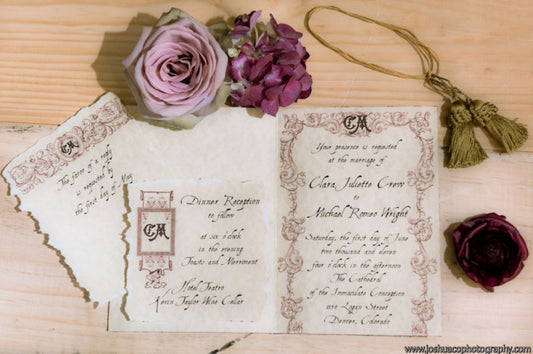 CM
The favor of a reply
is requested by
the first day of May
CM
Dinner Reception
to follow
at six o'clock
in the evening
Toasts and Merriment
Hotel Teatro
Kevin Taylor Wine Cellar
CM
Your presence is requested
at the marriage of
Clara Juliette Crow
to
Michael Romeo Wright
Saturday, the first day of June
two thousand and eleven
four o'clock in the afternoon
The Cathedral
of the Immaculate Conception
Logan Street
Denver, Colorado
www.joshuacophotography.com